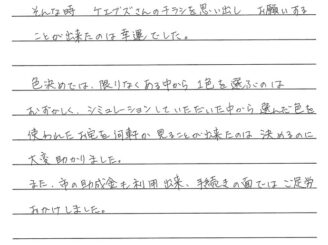 そんな時 ケエプズさんのチラシを思い出し お願いする
ことが出来たのは幸運でした。
色決めでは、限りなくある中から 1色を選ぶのは
むずかしく、シミュレーションしていただいた中から 選んだ色を
使われたお宅を何軒か 見ることが出来たのは 決めるのに
大変助かりました。
また、市の助成金も利用出来、手続きの面ではご足労
おかけしました。